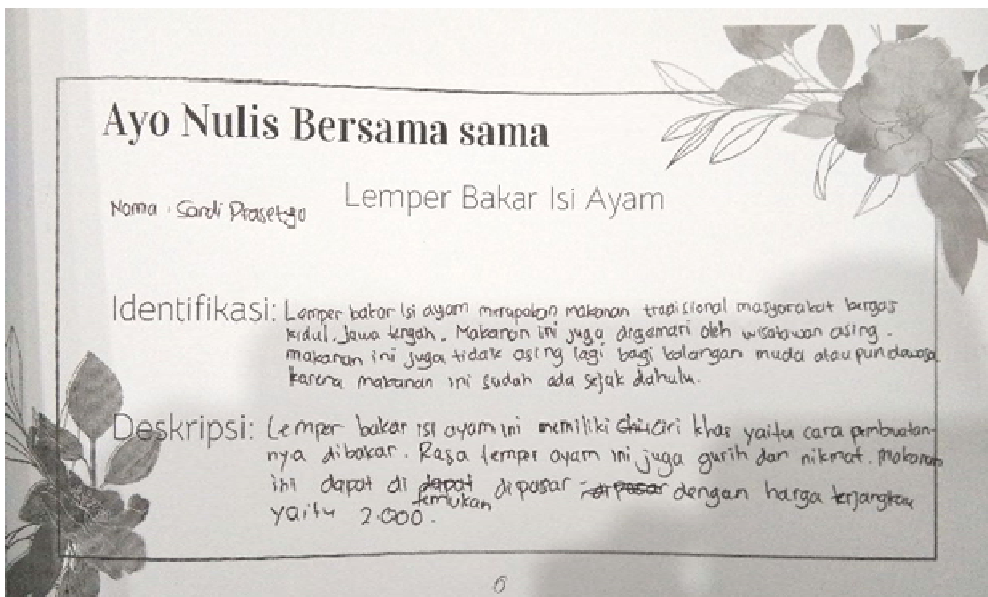 Ayo Nulis Bersama sama
Lemper Bakar Isi Ayam
Nama : Sandi Prasetyo
Identifikasi: Lemper bakar Isi ayam merupakan makanan tradisional masyarakat bergas
kidul, Jawa tengah. Makanan ini juga digemari oleh wisatawan asing.
makanan ini juga tidak asing lagi bagi kalangan muda ataupun dewasa
karena makanan ini sudah ada sejak dahulu.
Deskripsi: Lemper bakar isi ayam ini memiliki ciri khas yaitu cara pembuatan-
nya dibakar. Rasa lemper ayam ini juga gurih dan nikmat. Makanan
ini dapat di dapat dipasar dengan harga terjangkau
temukan
yaitu 2.000.